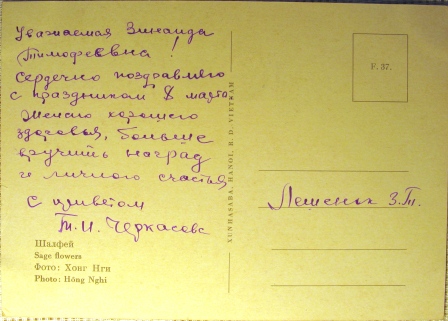 Уважаемая Зинаида
Тимофеевна!
Сердечно поздравляю
с праздником 8 марта
Желаю хорошего
здоровья, больше
вручить наград
и личного счастья
С приветом
Т.И. Черкасова
Шалфей
Sage flowers
Фото: Хонг Нги
Photo: Hông Nghi
XUNHASABA, HANOI, R. D. VIETNAM
F. 37.
Лешенок З.Т.